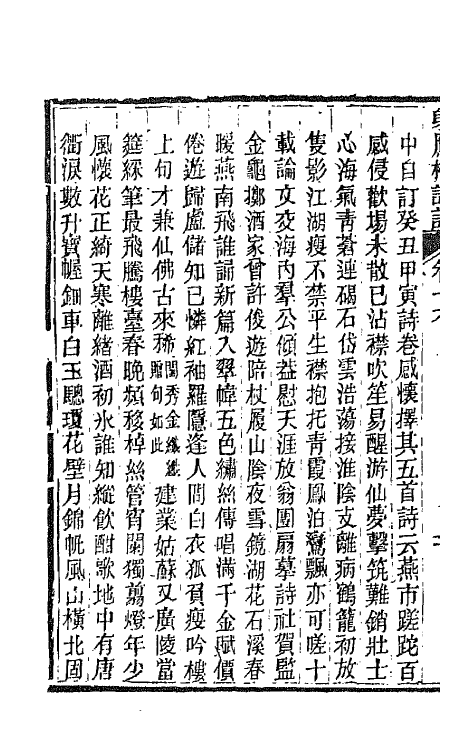 中自訂癸丑甲寅詩卷感懷擇其五首詩云燕市蹉跎百
感侵歡場未散已沾襟吹笙易醒游仙夢擊筑難銷壯士
心海氣靑蒼連碣石岱雲浩蕩接淮陰支離病鶴籠初放
隻影江湖瘦不禁平生襟抱托靑霞鳳泊鸞飄亦可嗟十
載論文交海內羣公傾葢慰天涯放翁團扇摹詩社賀監
金龜擲酒家曾許俊遊陪杖履山陰夜雪鏡湖花石溪春
暖燕南飛誰誦新篇入翠幃五色繡絲傳唱滿千金賦價
倦遊歸盧儲知已憐紅袖羅隱逢人間白衣孤負瘦吟樓
上句才兼仙佛古來稀閨秀金纖纖贈句如此建業姑蘇又廣陵當
筵綵筆最飛騰樓臺春晚頻移棹絲管宵闌獨剪燈年少
風懷花正綺天寒離緒酒初氷誰知縱飲酣歌地中有唐
衢淚數升寶幄鈿車白玉驄瓊花壁月錦帆風山橫北固